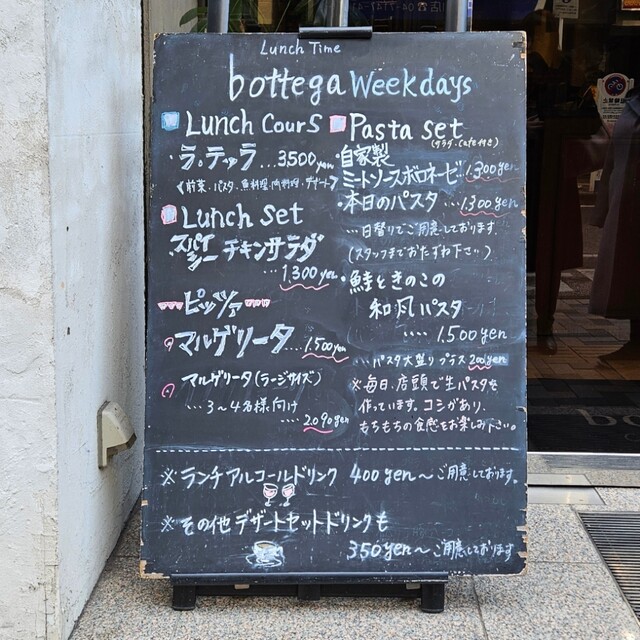 Lunch Time
bottega Weekdays
Lunch CourS
ラ・テッラ ... 3500yen
(前菜・パスタ・魚料理・肉料理・デザート)
Lunch Set
スパイシーチキンサラダ
1,300yen
ピッツァ
マルゲリータ...1,500yen
マルゲリータ(ラージサイズ)
... 3〜4名様向け
.... 2,090yen
Pasta Set
(サラダ・Cafe付き)
・自家製
ミートソースボロネーゼ...1,300yen
・本日のパスタ...1,300yen
... 日替りでご用意しております。
(スタッフまでおたずね下さい)
・鮭ときのこの
和風パスタ
.... 1,500yen
... パスタ大盛り プラス 200yen
※毎日、店頭で生パスタを
作っています。コシがあり、
もちもちの食感をお楽しみ下さい。
※ランチアルコールドリンク 400yen〜ご用意しております。
※その他デザートセットドリンクも
350yen〜ご用意しております